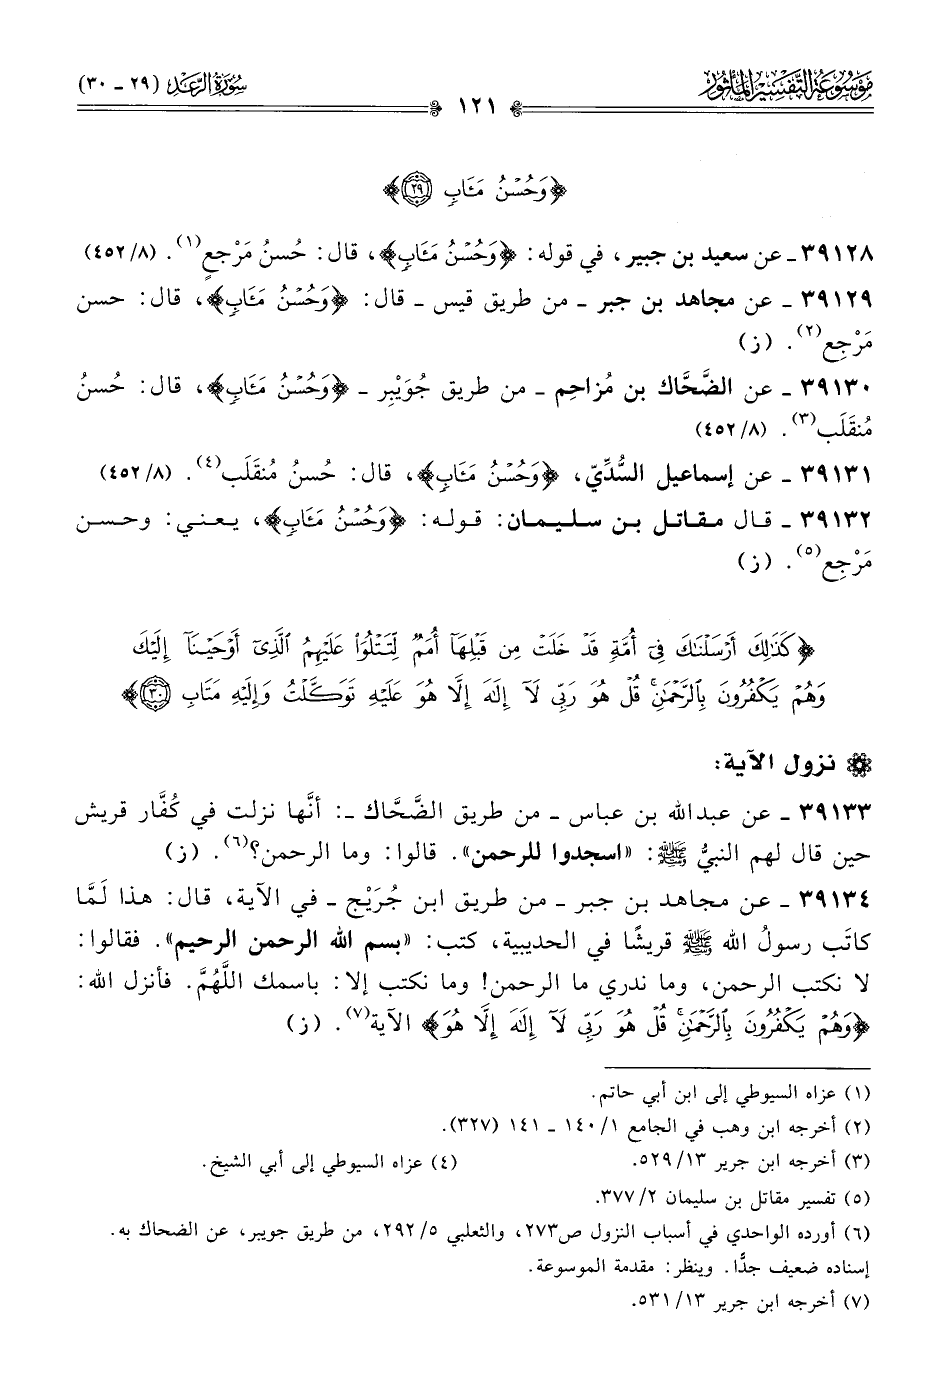 موسوعة التفسير المأثور
سورة الرعد (٢٩ - ٣٠)
١٢١
﴿وَحُسْنُ مَـَٔابٍ ٢٩﴾
٣٩١٢٨ـ عن سعيد بن جبير، في قوله: ﴿وَحُسْنُ مَـَٔابٍ﴾، قال: حُسنُ مَرْجعٍ(١). (٤٥٢/٨)
٣٩١٢٩ ـ عن مجاهد بن جبر ـ من طريق قيس ـ قال: ﴿وَحُسْنُ مَـَٔابٍ﴾، قال: حسن
مَرْجِع(٢). (ز)
٣٩١٣٠ ـ عن الضَّحَّاك بن مُزاحِم ـ من طريق جُوَيْبِر ـ ﴿وَحُسْنُ مَـَٔابٍ﴾، قال: حُسنُ
مُنقَلَب(٣). (٤٥٢/٨)
٣٩١٣١ ـ عن إسماعيل السُّدِّيّ، ﴿وَحُسْنُ مَـَٔابٍ﴾، قال: حُسنُ مُنقَلَب(٤). (٤٥٢/٨)
٣٩١٣٢ ـ قال مقاتل بن سليمان: قوله: ﴿وَحُسْنُ مَـَٔابٍ﴾، يعني: وحسن
مَرْجِع(٥). (ز)
﴿كَذَٰلِكَ أَرْسَلْنَٰكَ فِىٓ أُمَّةٍ قَدْ خَلَتْ مِن قَبْلِهَآ أُمَمٌ لِّتَتْلُوَا۟ عَلَيْهِمُ ٱلَّذِىٓ أَوْحَيْنَآ إِلَيْكَ
وَهُمْ يَكْفُرُونَ بِٱلرَّحْمَٰنِ ۚ قُلْ هُوَ رَبِّى لَآ إِلَٰهَ إِلَّا هُوَ عَلَيْهِ تَوَكَّلْتُ وَإِلَيْهِ مَتَابِ ٣٠﴾
نزول الآية:
٣٩١٣٣ ـ عن عبدالله بن عباس ـ من طريق الضَّحَّاك ـ: أنَّها نزلت في كُفَّار قريش
حين قال لهم النبيُّ ﷺ: «اسجدوا للرحمن». قالوا: وما الرحمن؟(٦). (ز)
٣٩١٣٤ ـ عن مجاهد بن جبر ـ من طريق ابن جُرَيْج ـ في الآية، قال: هذا لَمَّا
كاتَب رسولُ الله ﷺ قريشًا في الحديبية، كتب: «بسم الله الرحمن الرحيم». فقالوا:
لا نكتب الرحمن، وما ندري ما الرحمن! وما نكتب إلا: باسمك اللَّهُمَّ. فأنزل الله:
﴿وَهُمْ يَكْفُرُونَ بِٱلرَّحْمَٰنِ ۚ قُلْ هُوَ رَبِّى لَآ إِلَٰهَ إِلَّا هُوَ﴾ الآية(٧). (ز)
(١) عزاه السيوطي إلى ابن أبي حاتم.
(٢) أخرجه ابن وهب في الجامع ١/ ١٤٠ ـ ١٤١ (٣٢٧).
(٣) أخرجه ابن جرير ١٣/ ٥٢٩.
(٤) عزاه السيوطي إلى أبي الشيخ.
(٥) تفسير مقاتل بن سليمان ٢/ ٣٧٧.
(٦) أورده الواحدي في أسباب النزول ص٢٧٣، والثعلبي ٥/ ٢٩٢، من طريق جويبر، عن الضحاك به.
إسناده ضعيف جدًّا. وينظر: مقدمة الموسوعة.
(٧) أخرجه ابن جرير ١٣/ ٥٣١.